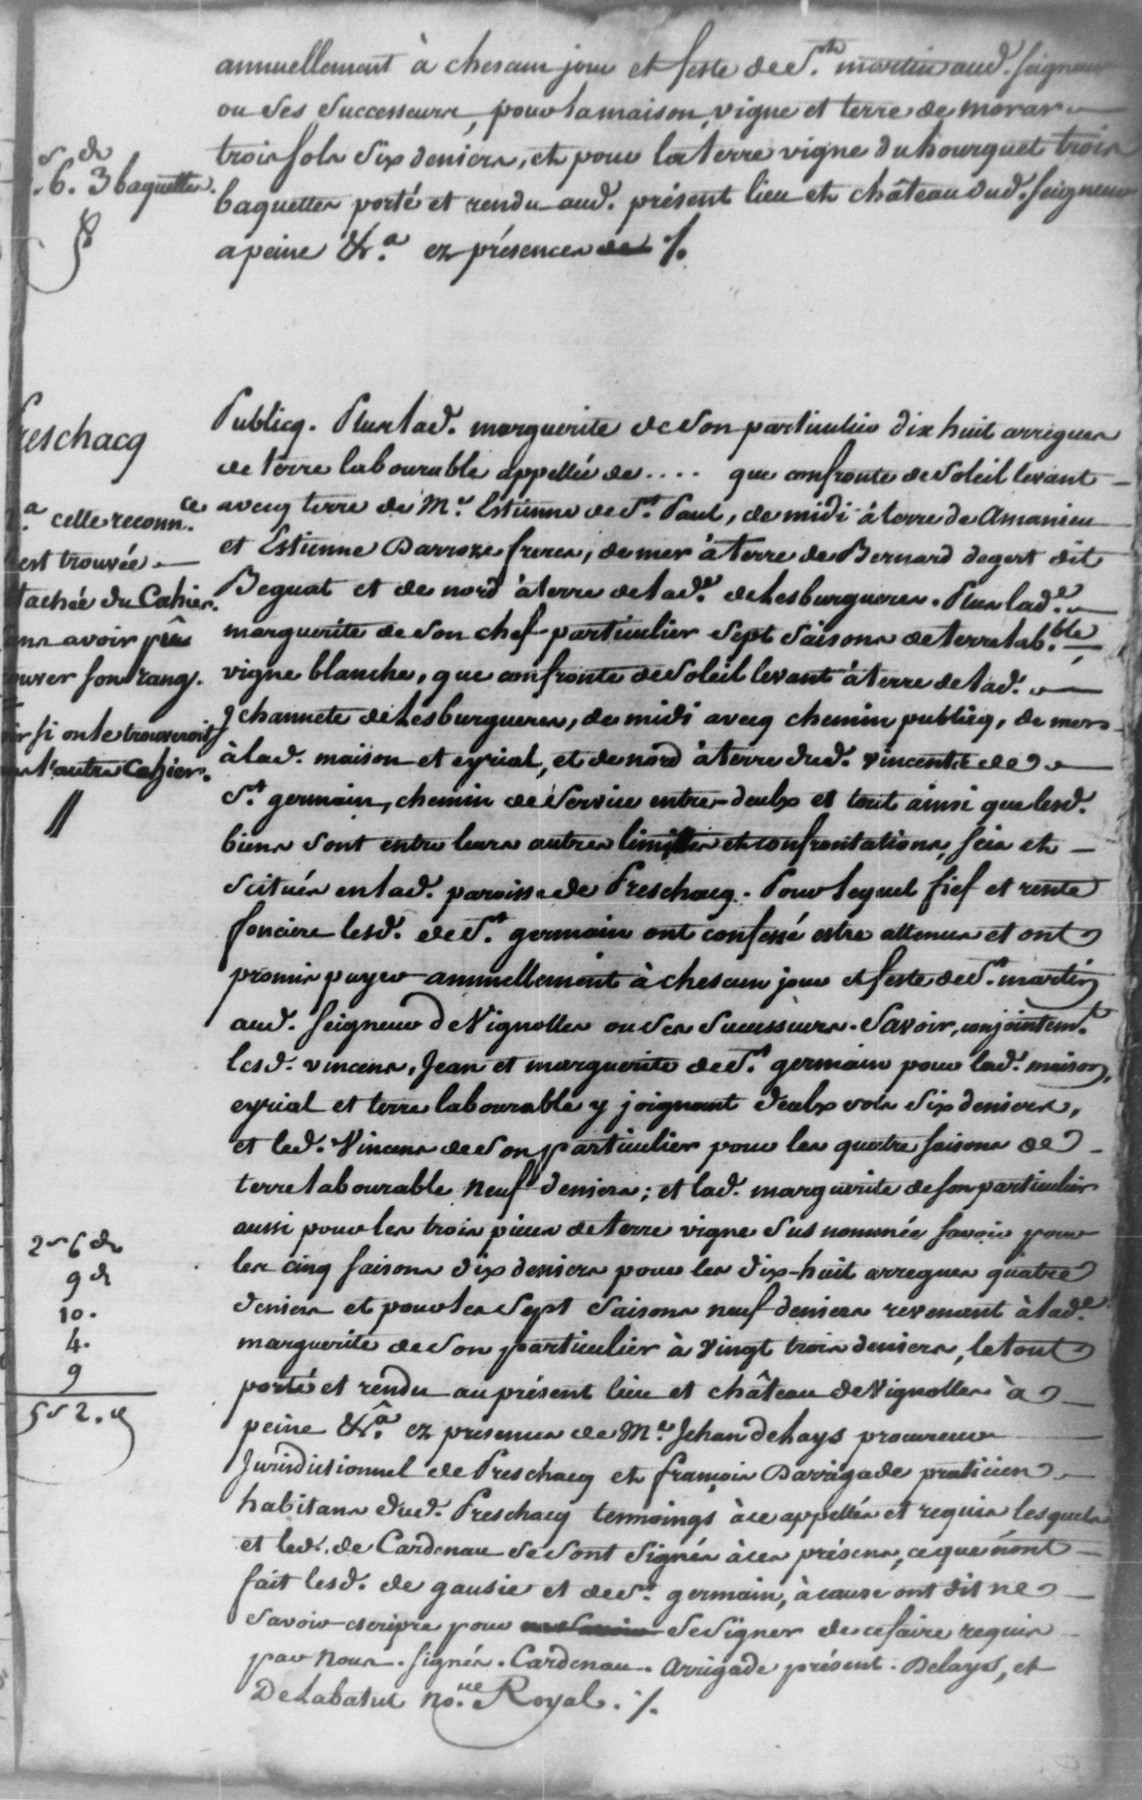 annuellement à chescun jour et feste de St. martin aud. seigneur
ou ses successeurs, pour la maison, vigne et terre de morar
trois sols six deniers, et pour la terre vigne du hourquet trois
baquettes porté et rendu aud. présent lieu et château dud. seigneur
a peine &c.a ez présences de /.
s d
. 6. 3 baquettes.
Publicq. Plus lad. marguerite de son particulier dix huit arregues
de terre labourable appellée de .... que confronte de soleil levant
avecq terre de Me. Estienne de St. Paul, de midi à terre de Amanieu
et Estienne Darroze freres, de mer à terre de Bernard degert dit
Beguat et de nord à terre de lad.e de Lesburgueres. Plus lad.e
marguerite de son chef particulier sept saisons de terre lab.ble
vigne blanche, que confronte de soleil levant à terre de lad.
Jehannete de Lesburgueres, de midi avecq chemin publicq, de mer
à lad. maison et eyrial, et de nord à terre dud. vincent de
St germain, chemin de service entre-deulx et tout ainsi que lesd.
biens sont entre leurs autres limites et confrontations, scis et
scitués en lad. paroisse de Preschacq. Pour lequel fief et rente
fonciere lesd. de St. germain ont confessé estre attenus et ont
promis payer annuellement à chescun jour et feste de St. martin
aud. seigneur de Vignolles ou ses successeurs. Savoir, conjointemt.
lesd. vincens, Jean et marguerite de St. germain pour lad. maison,
eyrial et terre labourable y joignant deulx sols six deniers,
et led. Vincens de son particulier pour les quatre saisons de
terre labourable neuf deniers; et lad. marguerite de son particulier
aussi pour les trois pieces de terre vigne sus nommée savoir pour
les cinq saisons dix deniers pour les dix-huit arregues quatre
deniers et pour les sept saisons neuf deniers revenant à lad.e
marguerite de son particulier à vingt trois deniers, le tout
porté et rendu au présent lieu et château de Vignolles à
peine &c.a ez presences de Me. Jehan delays procureur
Jurisdictionnel de Preschacq et françois Darrigade praticien
habitans dud. Preschacq temoings à ce appellés et requis lesquels
et led. de Cardenau se sont signés à ces présens, ce que n'ont
fait lesd. de gausie et de St. germain, à cause ont dit ne
savoir escripre pour se signer de ce faire requis
par nous. signés. Cardenau. Arrigade présent. Delays, et
De Labatut no.re Royal. /.
Preschacq
a celle reconn.ce
est trouvée
tachée du Cahier.
ans avoir pû
ouver son rang.
ir si on le trouveroit
ns l'autre Cahier.
2 s 6 d
9 d
10.
4.
9
5 s 2. d